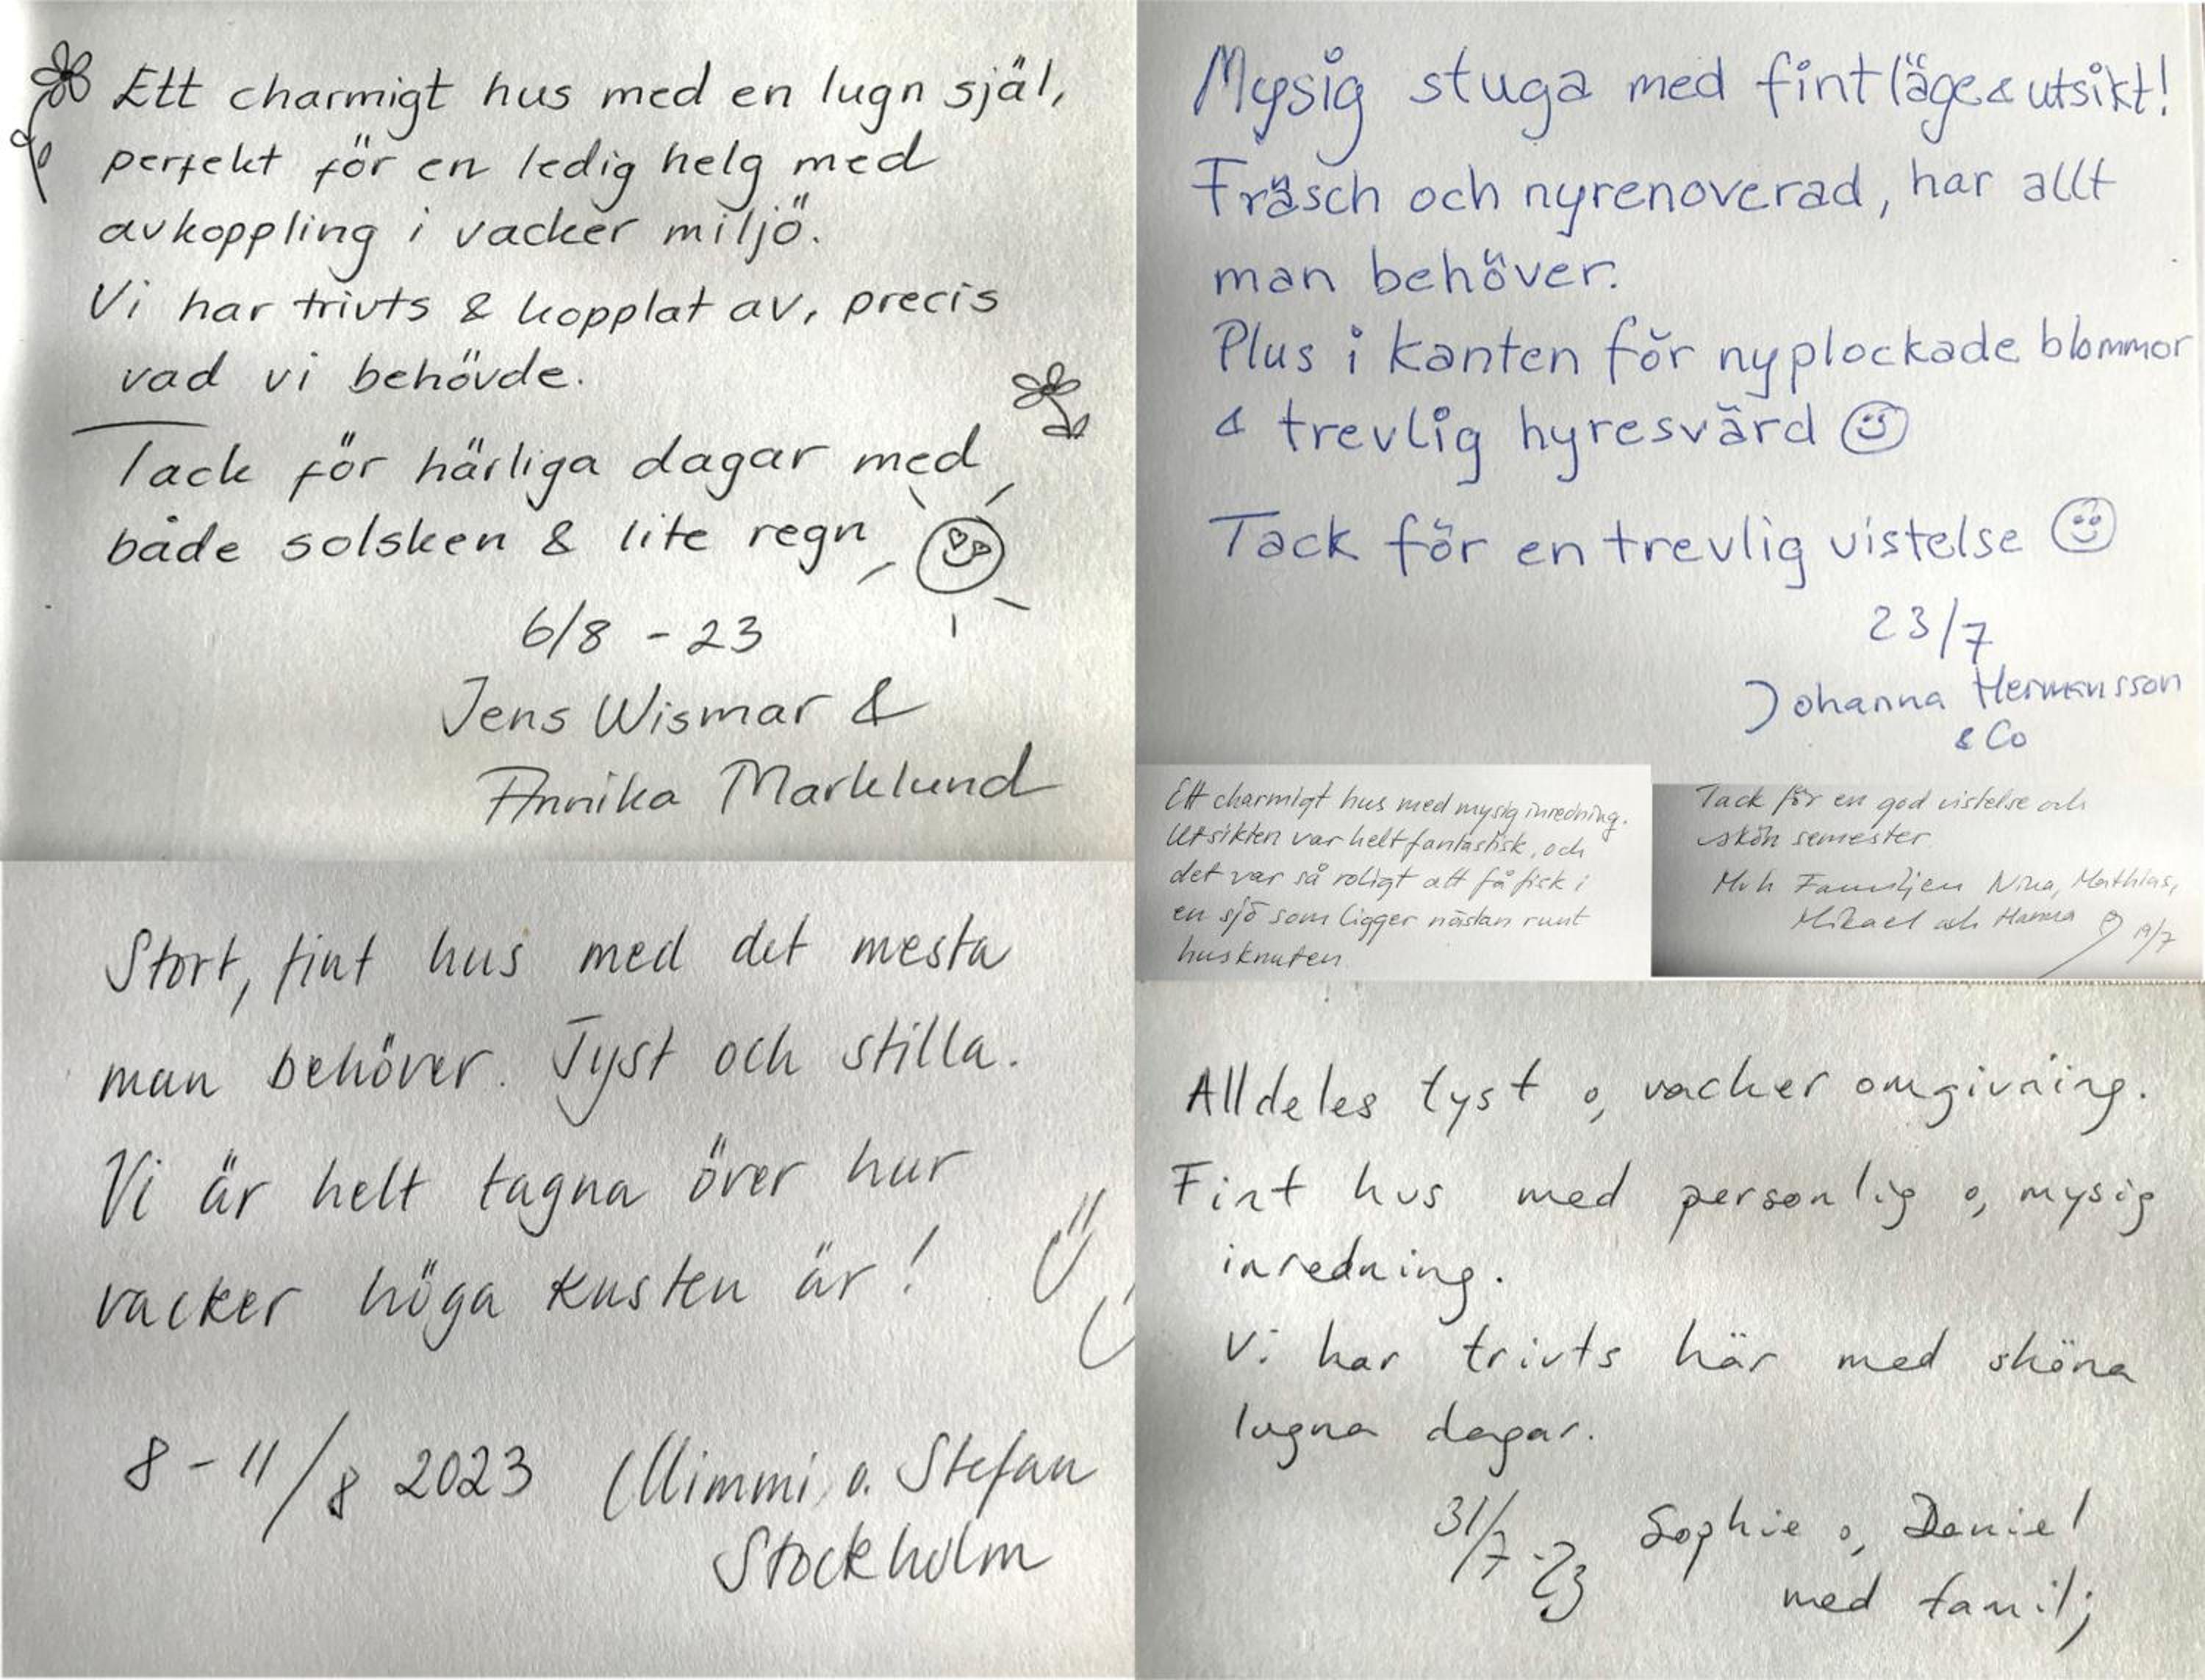 Ett charmigt hus med en lugn själ,
perfekt för en ledig helg med
avkoppling i vacker miljö.
Vi har trivts & kopplat av, precis
vad vi behövde.
Tack för härliga dagar med
både solsken & lite regn
6/8 - 23
Jens Wismar &
Annika Marklund
Mysig stuga med fint läge & utsikt!
Fräsch och nyrenoverad, har allt
man behöver.
Plus i kanten för nyplockade blommor
& trevlig hyresvärd
Tack för en trevlig vistelse
23/7
Johanna Hermansson
& Co
Ett charmigt hus med mysig inredning.
Utsikten var helt fantastisk, och
det var så roligt att få fisk i
en sjö som ligger nästan runt
husknuten.
Tack för en god vistelse och
skön semester
Mvh Familjen Nina, Mathias,
Mikael och Hanna
19/7
Stort, fint hus med det mesta
man behöver. Tyst och stilla.
Vi är helt tagna över hur
vacker höga kusten är!
8-11/8 2023 Mimmi o. Stefan
Stockholm
Alldeles tyst o, vacker omgivning.
Fint hus med personlig o, mysig
inredning.
Vi har trivts här med sköna
lugna dagar.
31/7-23 Sophie o, Daniel
med familj